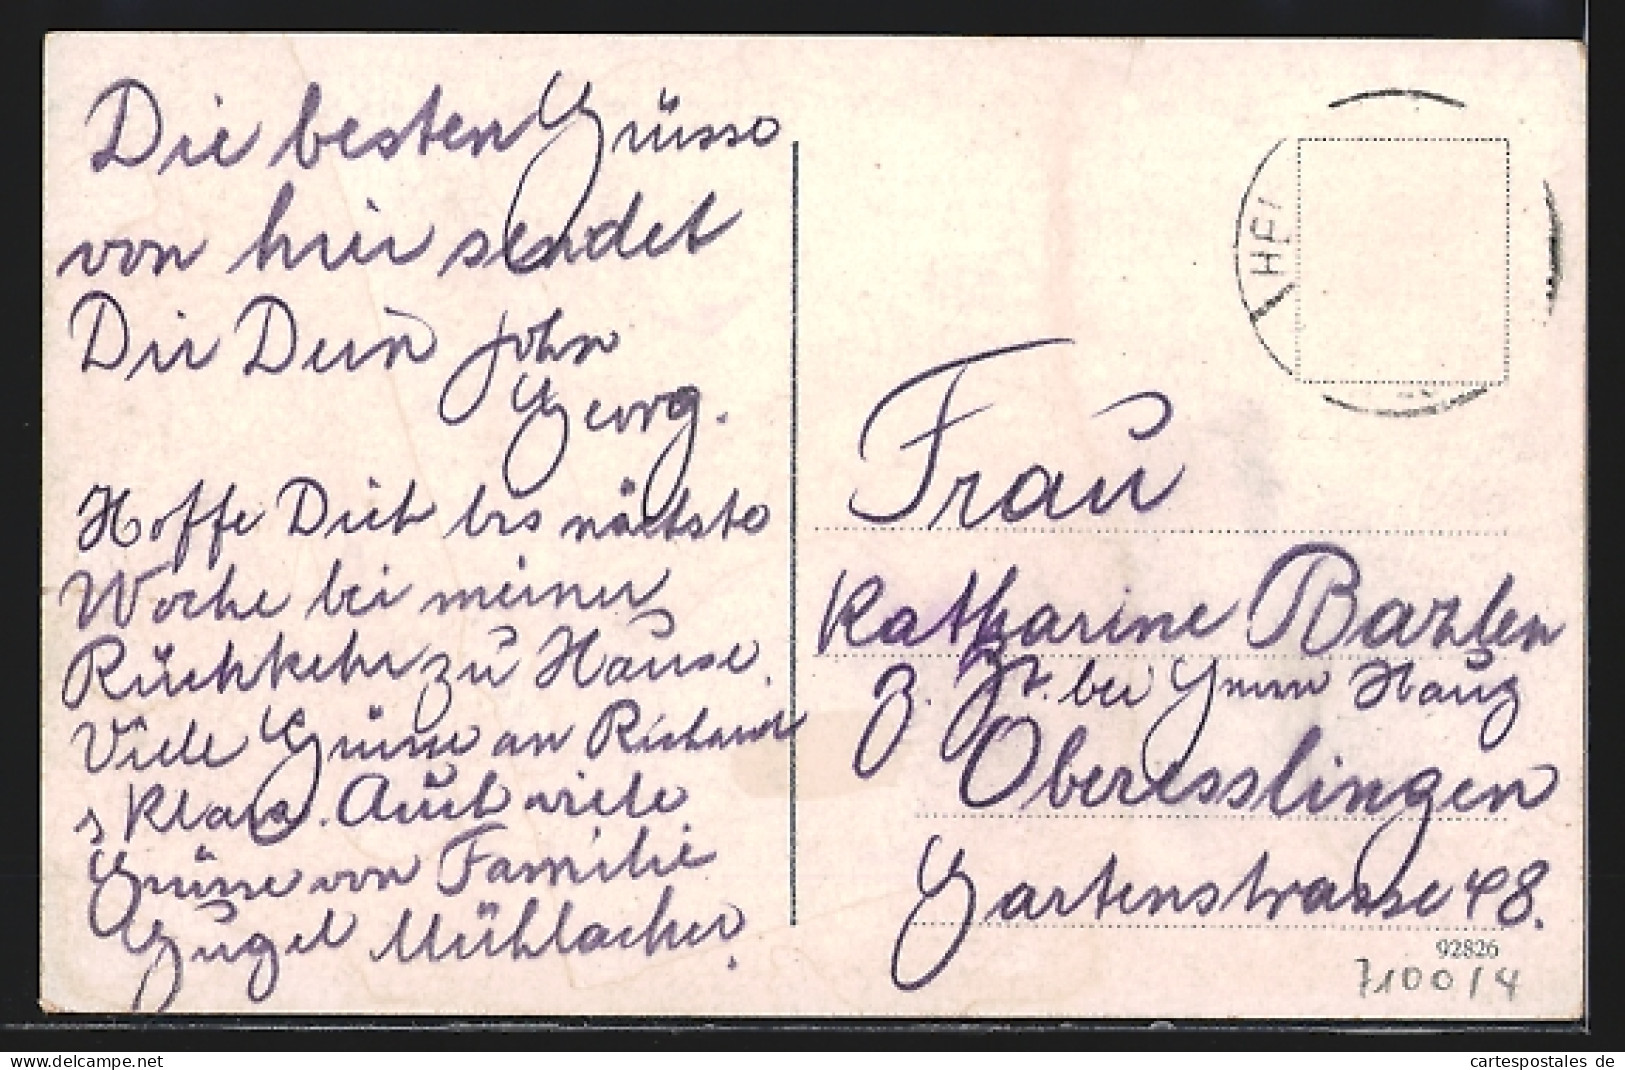 Die besten Grüsse
von hier sendet
Dir Dein John
Georg.
Hoffe Dich bis nächste
Woche bei meiner
Rückkehr zu Hause.
Viele Grüsse an Richard
Klara. Auch viele
Grüsse von Familie
Gugel Mühlacker.
HEI
Frau
Katharine Bazlen
z. Zt. bei Haug
Oberesslingen
Gartenstrasse 48.
92826
7100/4
eBay: the-best-for-collectors
cartespostales de